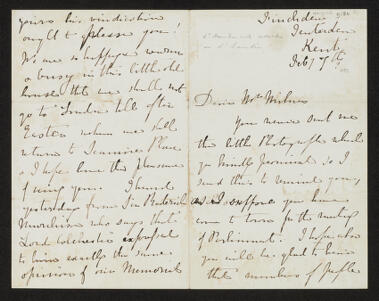 Tenterden
Kent
Feby 17th
Dear Mr Milnes
You never sent me
the little Photographs which
you kindly promised so I
send this to remind you,
as I suppose you have
come to town for the meeting
of Parliament. I hope also
you will be glad to hear
that numbers of people
yours his vindication
ought to please you!
We are so happy warm
& busy in this little old
house that we shall not
go to London till after
Easter when we shall
return to Place
& I hope have the pleasure
of seeing you. I heard
yesterday from Sir Roderick
Murchison who says that
Lord Colchester expressed
to him exactly the same
opinion of our Memorial